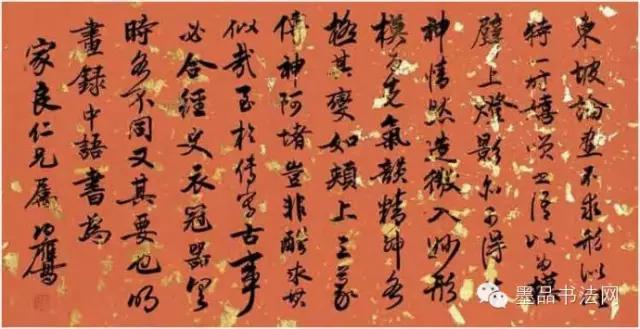 東坡論畫不求形似
特一時嬉笑之
壁上燈影尔可得
神情然造微入妙形
模為先氣韻精神各
極其變如頰上三毫
傳神阿堵豈非酷求其
似哉至於傳寫古事
必合經史衣冠器具
時各不同又其要也明
畫錄中語書為
家良仁兄屬
墨品书法网